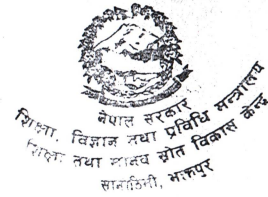 नेपाल सरकार
शिक्षा, विज्ञान तथा प्रविधि मन्त्रालय
शिक्षा तथा मानव स्रोत विकास केन्द्र
सानोठिमी, भक्तपुर